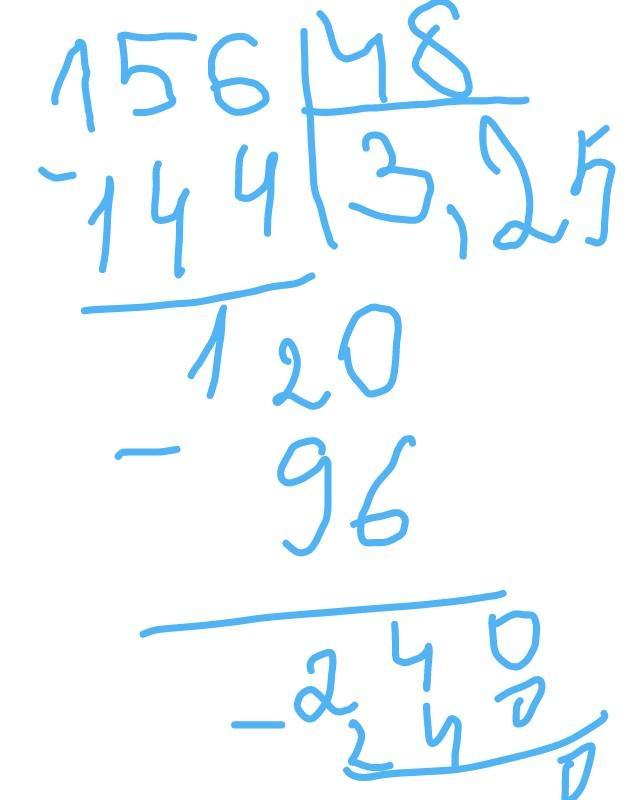 156 48
- 144 3,25
120
- 96
240
- 240
0